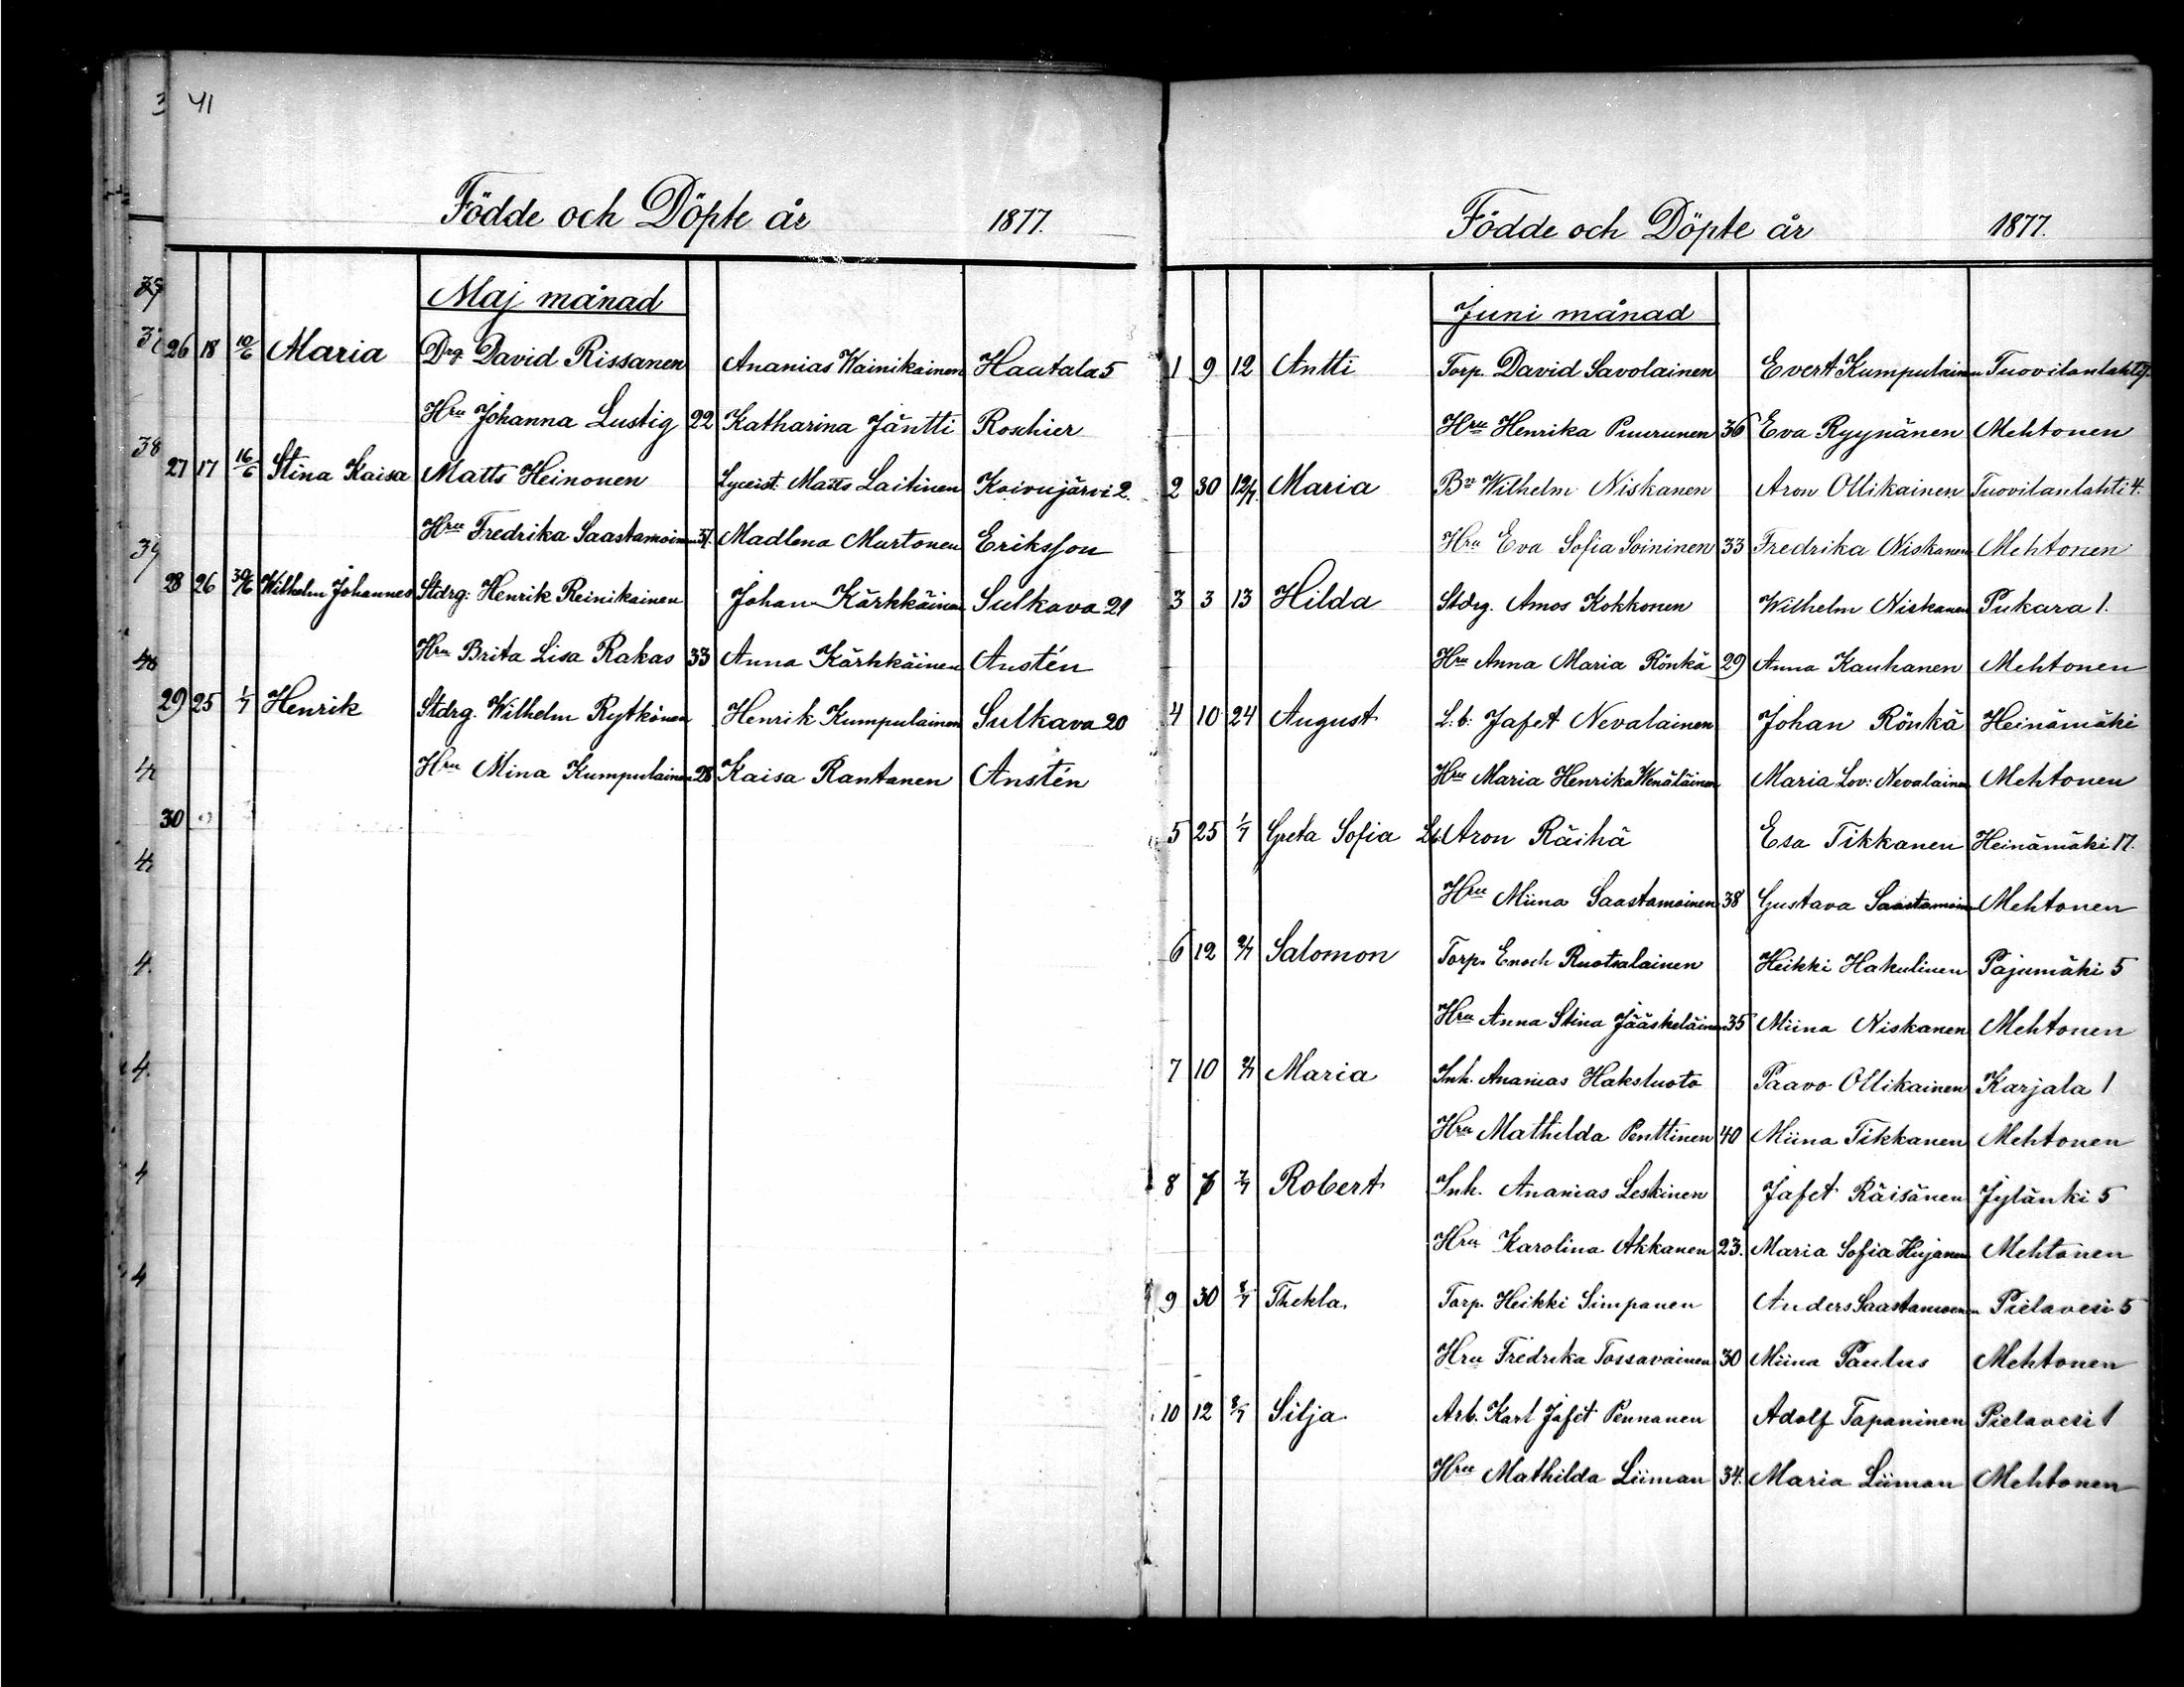 41
Födde och Döpte år 1877.
Maj månad
26 18 10/6 Maria Drg David Rissanen Ananias Wainikainen Haatala 5
Hru Johanna Lustig 22 Katharina Jäntti Roschier
27 17 16/6 Stina Kaisa Matts Heinonen Lyceist. Matts Laitinen Koivujärvi 2.
Hru Fredrika Saastamoinen 37. Madlena Murtonen Eriksson
28 26 30/6 Wilhelm Johannes Stdrg: Henrik Reinikainen Johan Kärkkäinen Sulkava 21
Hru Brita Lisa Rakas 33 Anna Kärkkäinen Austén
29 25 1/7 Henrik Stdrg. Wilhelm Rytkönen Henrik Kumpulainen Sulkava 20
Hru Mina Kumpulainen 28 Kaisa Rantanen Austén
30
Födde och Döpte år 1877.
Juni månad
1 9 12 Antti Torp. David Savolainen Evert Kumpulainen Tuovilanlahti
Hru Henrika Puurunen 36 Eva Ryynänen Mehtonen
2 30 12/7 Maria Br Wilhelm Niskanen Aron Ollikainen Tuovilanlahti 4.
Hru Eva Sofia Soininen 33 Fredrika Niskanen Mehtonen
3 3 13 Hilda Stdrg. Amos Kokkonen Wilhelm Niskanen Pukara 1.
Hru Anna Maria Rönkä 29 Anna Kauhanen Mehtonen
4 10 24 August L: b: Jafet Nevalainen Johan Rönkä Heinämäki
Hru Maria Henrika Wenäläinen Maria Lov: Nevalainen Mehtonen
5 25 1/7 Greta Sofia Aron Räihä Esa Tikkanen Heinämäki 17.
Hru Miina Saastamoinen 38 Gustava Saastamoinen Mehtonen
6 12 2/7 Salomon Torp. Enoch Ruotsalainen Heikki Hakulinen Pajumäki 5
Hru Anna Stina Jääskeläinen 35 Miina Niskanen Mehtonen
7 10 2/7 Maria Inh. Ananias Haksluoto Paavo Ollikainen Karjala 1
Hru Mathilda Penttinen 40 Miina Tikkanen Mehtonen
8 7/7 Robert Inh. Ananias Leskinen Jafet Räisänen Jylänki 5
Hru Karolina Akkanen 23. Maria Sofia Mehtonen
9 30 8/7 Thekla. Torp. Heikki Simpanen Anders Saastamoinen Pielavesi 5
Hru Fredrika Tossavainen 30 Miina Paulus Mehtonen
10 12 8/7 Silja Arb. Karl Jafet Pennanen Adolf Tapaninen Pielavesi 1
Hru Mathilda Liiman 34. Maria Liiman Mehtonen